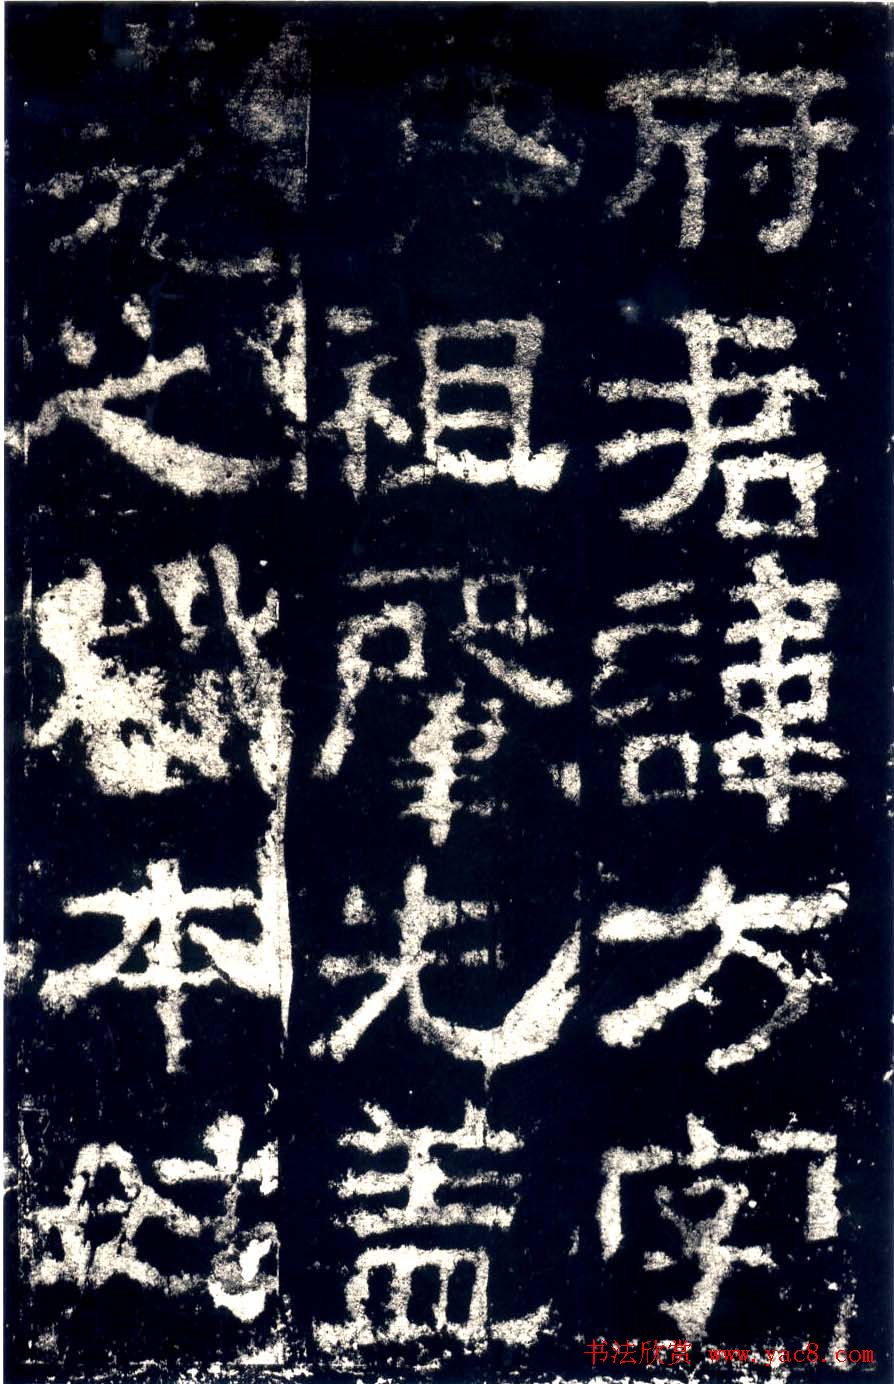 府君諱方字
祖肇先蓋
之本姓
书法欣赏 www.yac8.com